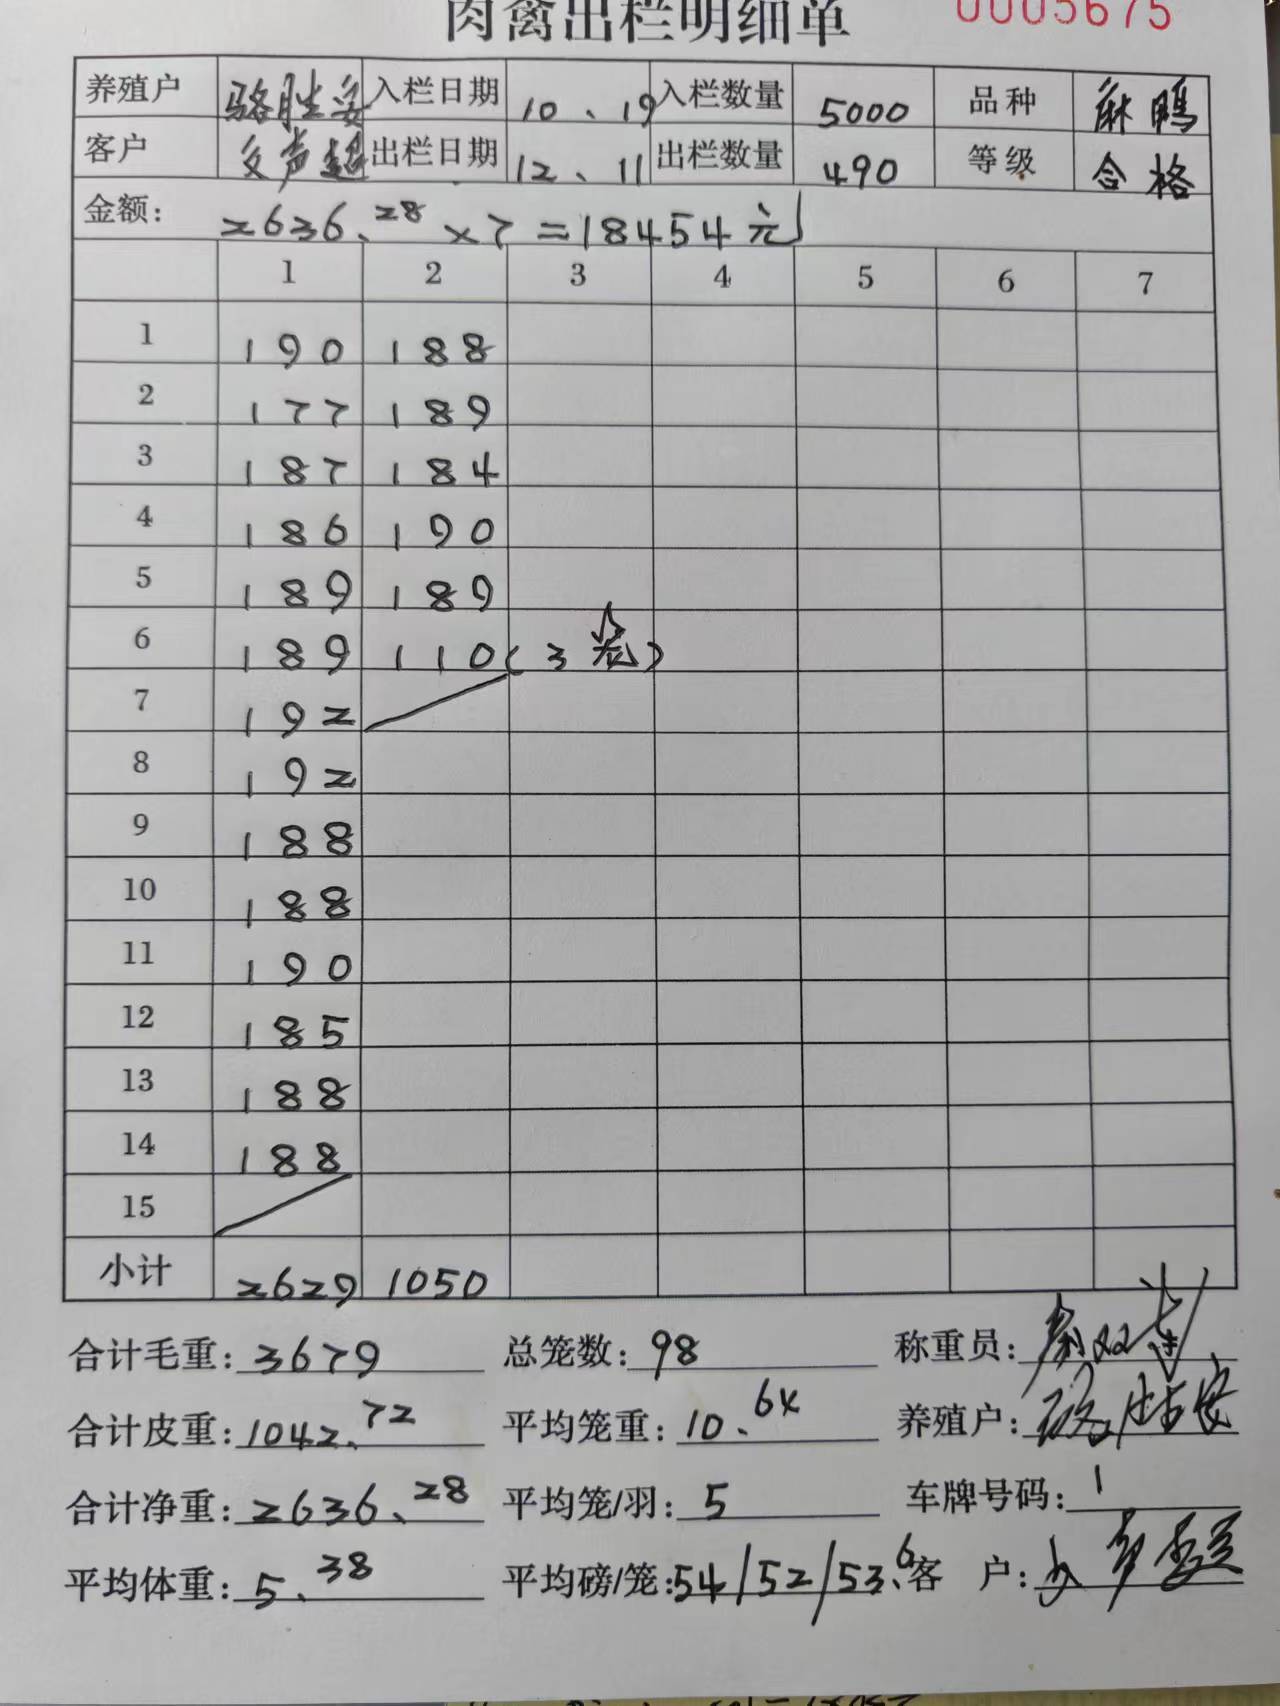 肉禽出栏明细单 0005675
养殖户 骆胜安 入栏日期 10、19 入栏数量 5000 品种 麻鸭
客户 文声超 出栏日期 12、11 出栏数量 490 等级 合格
金额: 2636.28 × 7 = 18454元
1 2 3 4 5 6 7
1 190 188
2 177 189
3 187 184
4 186 190
5 189 189
6 189 110(3笼)
7 192
8 192
9 188
10 188
11 190
12 185
13 188
14 188
15
小计 2629 1050
合计毛重: 3679 总笼数: 98 称重员:
合计皮重: 1042.72 平均笼重: 10.64 养殖户: 骆胜安
合计净重: 2636.28 平均笼/羽: 5 车牌号码: 1
平均体重: 5.38 平均磅/笼: 54/52/53.6 客 户: 文声超